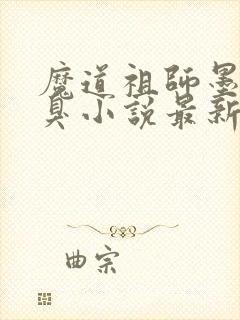 魔道祖師墨
臭小說最新
曲宗